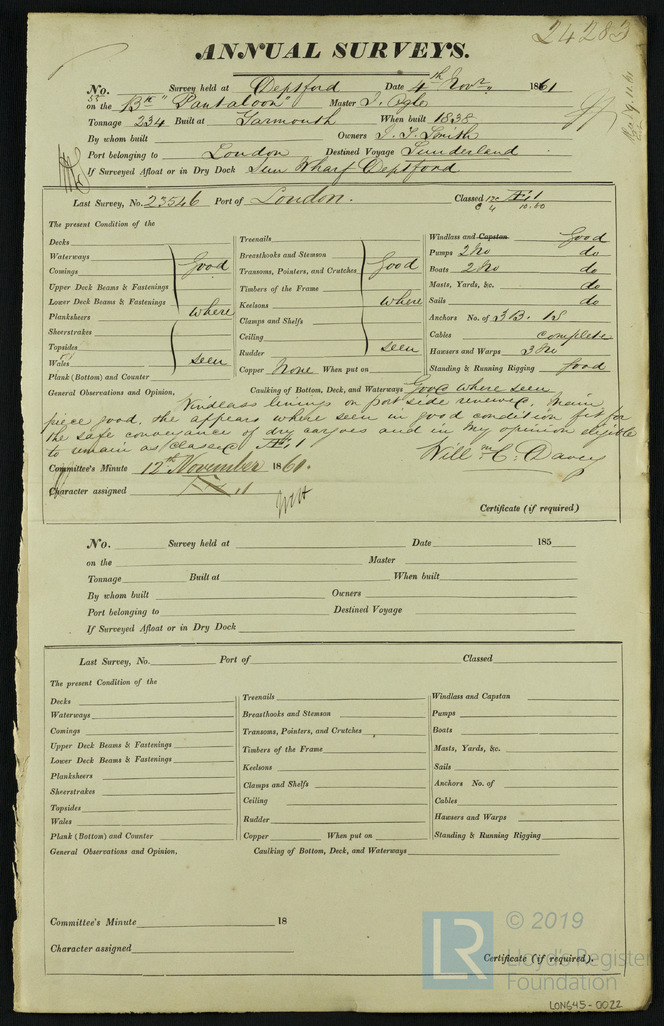 24283
ANNUAL SURVEYS.
No. 55 Survey held at Deptford Date 4th Novr. 1861
on the Bn "Pantaloon" Master J. Ogle
Tonnage 234 Built at Yarmouth When built 1838
By whom built Owners J. T. Smith
Port belonging to London Destined Voyage Sunderland
If Surveyed Afloat or in Dry Dock Sun Wharf Deptford
Last Survey, No. 23546 Port of London. Classed Æ1
The present Condition of the
Decks
Waterways
Comings
Upper Deck Beams & Fastenings
Lower Deck Beams & Fastenings
Planksheers
Sheerstrakes
Topsides
Wales
Plank (Bottom) and Counter
Good
where
seen
Treenails
Breasthooks and Stemson
Transoms, Pointers, and Crutches
Timbers of the Frame
Keelsons
Clamps and Shelfs
Ceiling
Rudder
Good
where
seen
Copper None When put on
Windlass and Capstan Good
Pumps 2 No do
Boats 2 No do
Masts, Yards, &c. do
Sails do
Anchors No. of 3B. 1S
Cables complete
Hawsers and Warps 3 No
Standing & Running Rigging Good
General Observations and Opinion, Caulking of Bottom, Deck, and Waterways Good where seen
Windlass linings on port side renewed, main
piece good, she appears where seen in good condition fit for
the safe conveyance of dry cargoes and in my opinion eligible
to remain as classed Æ1
Willm. C. Davey
Committee's Minute 12th November 1861.
Character assigned Æ1
Certificate (if required)
No. Survey held at Date 185
on the Master
Tonnage Built at When built
By whom built Owners
Port belonging to Destined Voyage
If Surveyed Afloat or in Dry Dock
Last Survey, No. Port of Classed
The present Condition of the
Decks
Waterways
Comings
Upper Deck Beams & Fastenings
Lower Deck Beams & Fastenings
Planksheers
Sheerstrakes
Topsides
Wales
Plank (Bottom) and Counter
Treenails
Breasthooks and Stemson
Transoms, Pointers, and Crutches
Timbers of the Frame
Keelsons
Clamps and Shelfs
Ceiling
Rudder
Copper When put on
Windlass and Capstan
Pumps
Boats
Masts, Yards, &c.
Sails
Anchors No. of
Cables
Hawsers and Warps
Standing & Running Rigging
General Observations and Opinion, Caulking of Bottom, Deck, and Waterways
Committee's Minute 18
Character assigned
Certificate (if required).
LR
© 2019
Lloyd's Register
Foundation
LON645-0022